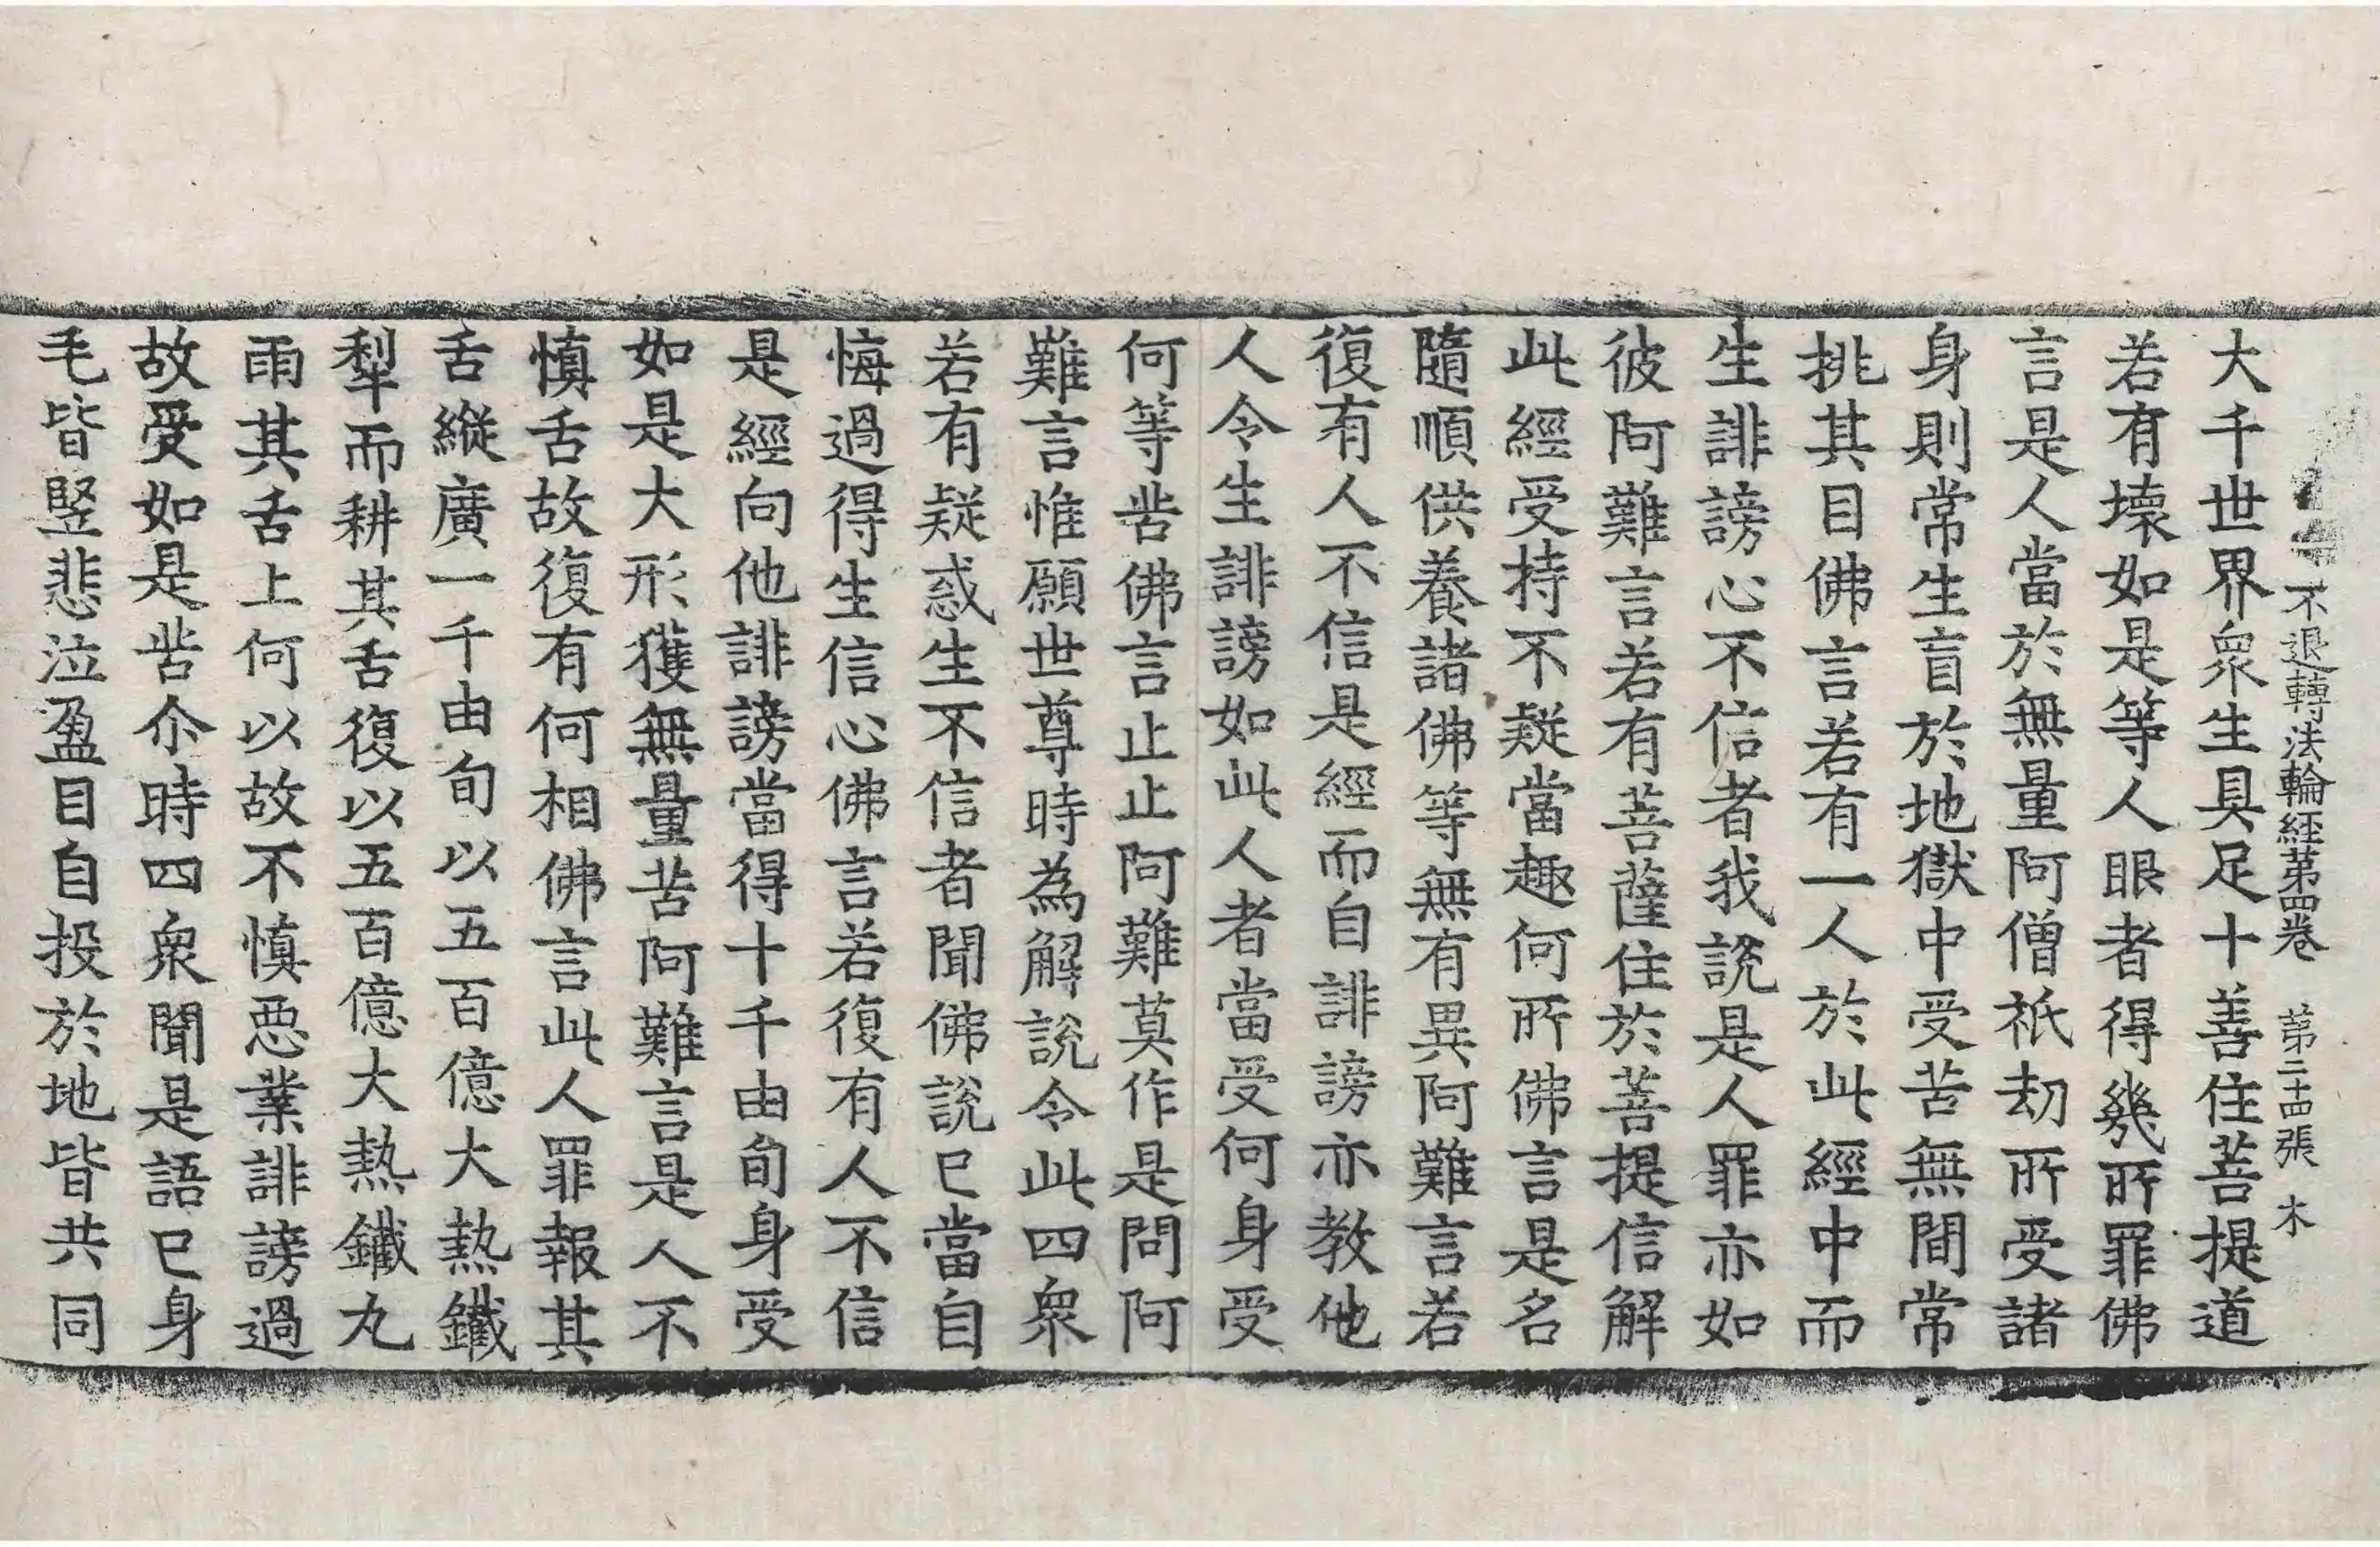 不退轉法輪經苐四卷　苐二十四張　木
大千世界衆生具足十善住菩提道
若有壞如是等人眼者得幾所罪佛
言是人當於無量阿僧祇劫所受諸
身則常生盲於地獄中受苦無間常
挑其目佛言若有一人於此經中而
生誹謗心不信者我說是人罪亦如
彼阿難言若有菩薩住於菩提信解
此經受持不疑當趣何所佛言是名
隨順供養諸佛等無有異阿難言若
復有人不信是經而自誹謗亦教他
人令生誹謗如此人者當受何身受
何等苦佛言止止阿難莫作是問阿
難言惟願世尊時為解說令此四衆
若有疑惑生不信者聞佛說已當自
悔過得生信心佛言若復有人不信
是經向他誹謗當得十千由旬身受
如是大形獲無量苦阿難言是人不
慎舌故復有何相佛言此人罪報其
舌縱廣一千由旬以五百億大熱鐵
犁而耕其舌復以五百億大熱鐵丸
雨其舌上何以故不慎惡業誹謗過
故受如是苦尒時四衆聞是語已身
毛皆竪悲泣盈目自投於地皆共同